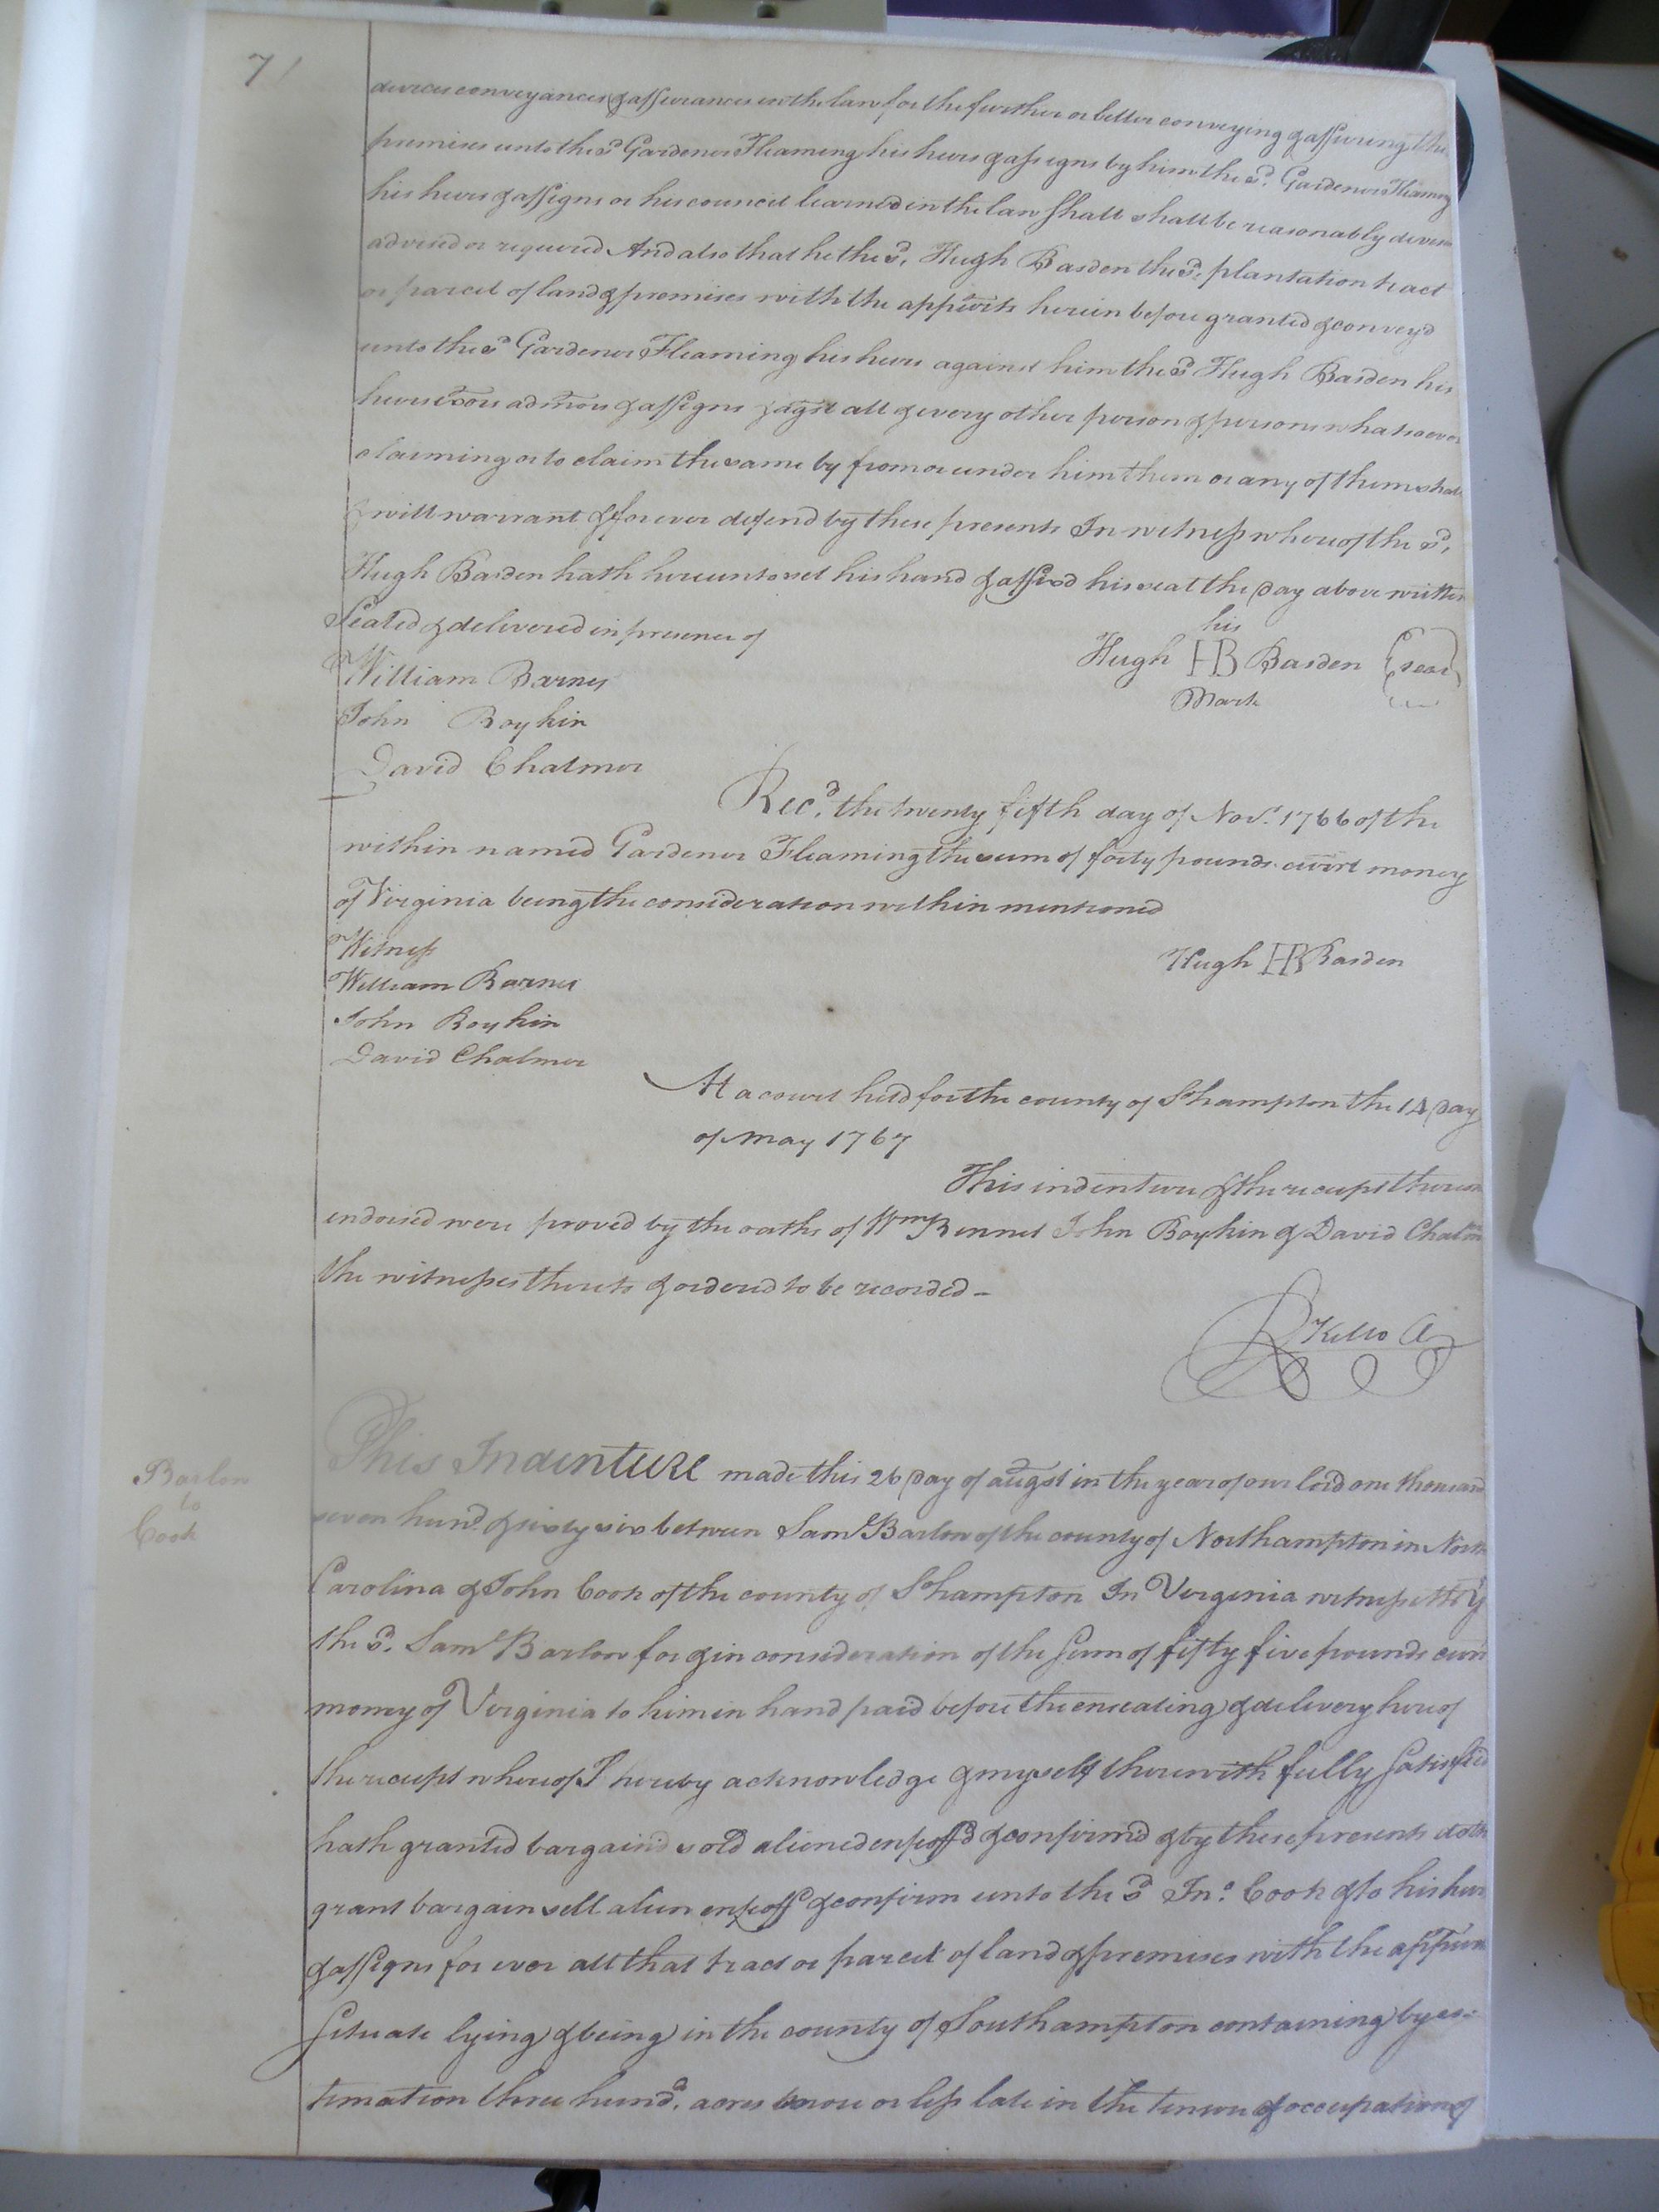 71
devices conveyances & assurances in the law for the further or better conveying & assuring the
premises unto the sd Gardener Fleaming his heirs & assigns by him the sd. Gardener Fleaming
his heirs & assigns or his council learned in the law shall shall be reasonably devised
advised or required And also that he the sd. Hugh Basden the sd. plantation tract
or parcel of land & premises with the appurts herein before granted & convey'd
unto the sd Gardener Fleaming his heirs against him the sd Hugh Basden his
heirs exors admors & assigns & agst all & every other person & persons whatsoever
claiming or to claim the same by from or under him them or any of them shall
& will warrant & forever defend by these presents In witness whereof the sd.
Hugh Basden hath hereunto set his hand & affixd his seal the Day above written
Sealed & delivered in presence of
his
Hugh HB Basden (seal)
Mark
William Barnes
John Boykin
David Chalmer
Recd. the twenty fifth day of Nov. 1766 of the
within named Gardener Fleaming the sum of forty pounds currt money
of Virginia being the consideration within mentioned
Witness
Hugh HB Basden
William Barnes
John Boykin
David Chalmer
At a court held for the county of Shampton the 14 Day
of may 1767
This indenture & the receipt thereon
endorsed were proved by the oaths of Wm Bennet John Boykin & David Chalmr
the witnesses thereto & ordered to be recorded -
R Kello
Barlow
to
Cook
This Indenture made this 26 Day of augst in the year of our lord one thousand
seven hund & sixty six between Saml Barlow of the county of Northampton in North
Carolina & John Cook of the county of Shampton In Virginia witnesseth yt
the sd. Saml Barlow for & in consideration of the Sum of fifty five pounds curr
money of Virginia to him in hand paid before the ensealing & delivery hereof
the receipt whereof I hereby acknowledge & myself therewith fully Satisfied
hath granted bargained sold aliened enfeoff'd & confirmd & by these presents doth
grant bargain sell alien enfeoff & confirm unto the sd Jno. Cook & to his heirs
& assigns for ever all that tract or parcel of land & premises with the appurn
Situate lying & being in the county of Southampton containing by es=
timation three hund. acres more or less late in the tenure & occupation of